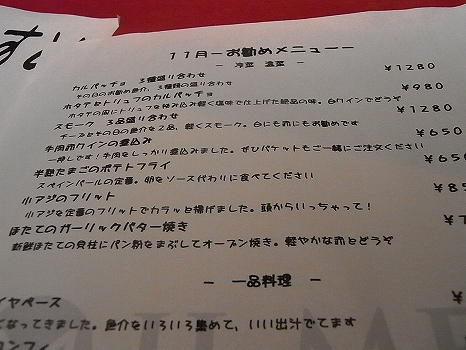 11月ーお勧めメニューー
－ 冷菜 温菜 －
カルパッチョ 3種盛り合わせ ￥1280
その日のお勧め魚介、3種類の盛り合わせ
ホタテとトリュフのカルパッチョ ￥980
ホタテの間にトリュフを挟み込み軽く塩味で仕上げた絶品の味。白ワインでどうぞ
スモーク 3品盛り合わせ ￥1280
チーズとその日の魚介を2品、軽くスモーク。白にも赤にもお勧めです
牛肉赤ワインの煮込み ￥650
一押しです！牛肉をしっかり煮込みました。ぜひバケットもご一緒にご注文ください
半熟たまごのポテトフライ ￥650
スペインバールの定番。卵をソース代わりに食べてください
小アジのフリット ￥85
小アジを定番のフリットでカラッと揚げました。頭からいっちゃって！
ほたてのガーリックバター焼き ￥7
新鮮ほたての貝柱にパン粉をまぶしてオーブン焼き。軽やかな赤とどうぞ
－ 一品料理 －
イヤベース ￥
くなってきました。魚介をいろいろ集めて、いい出汁でてます